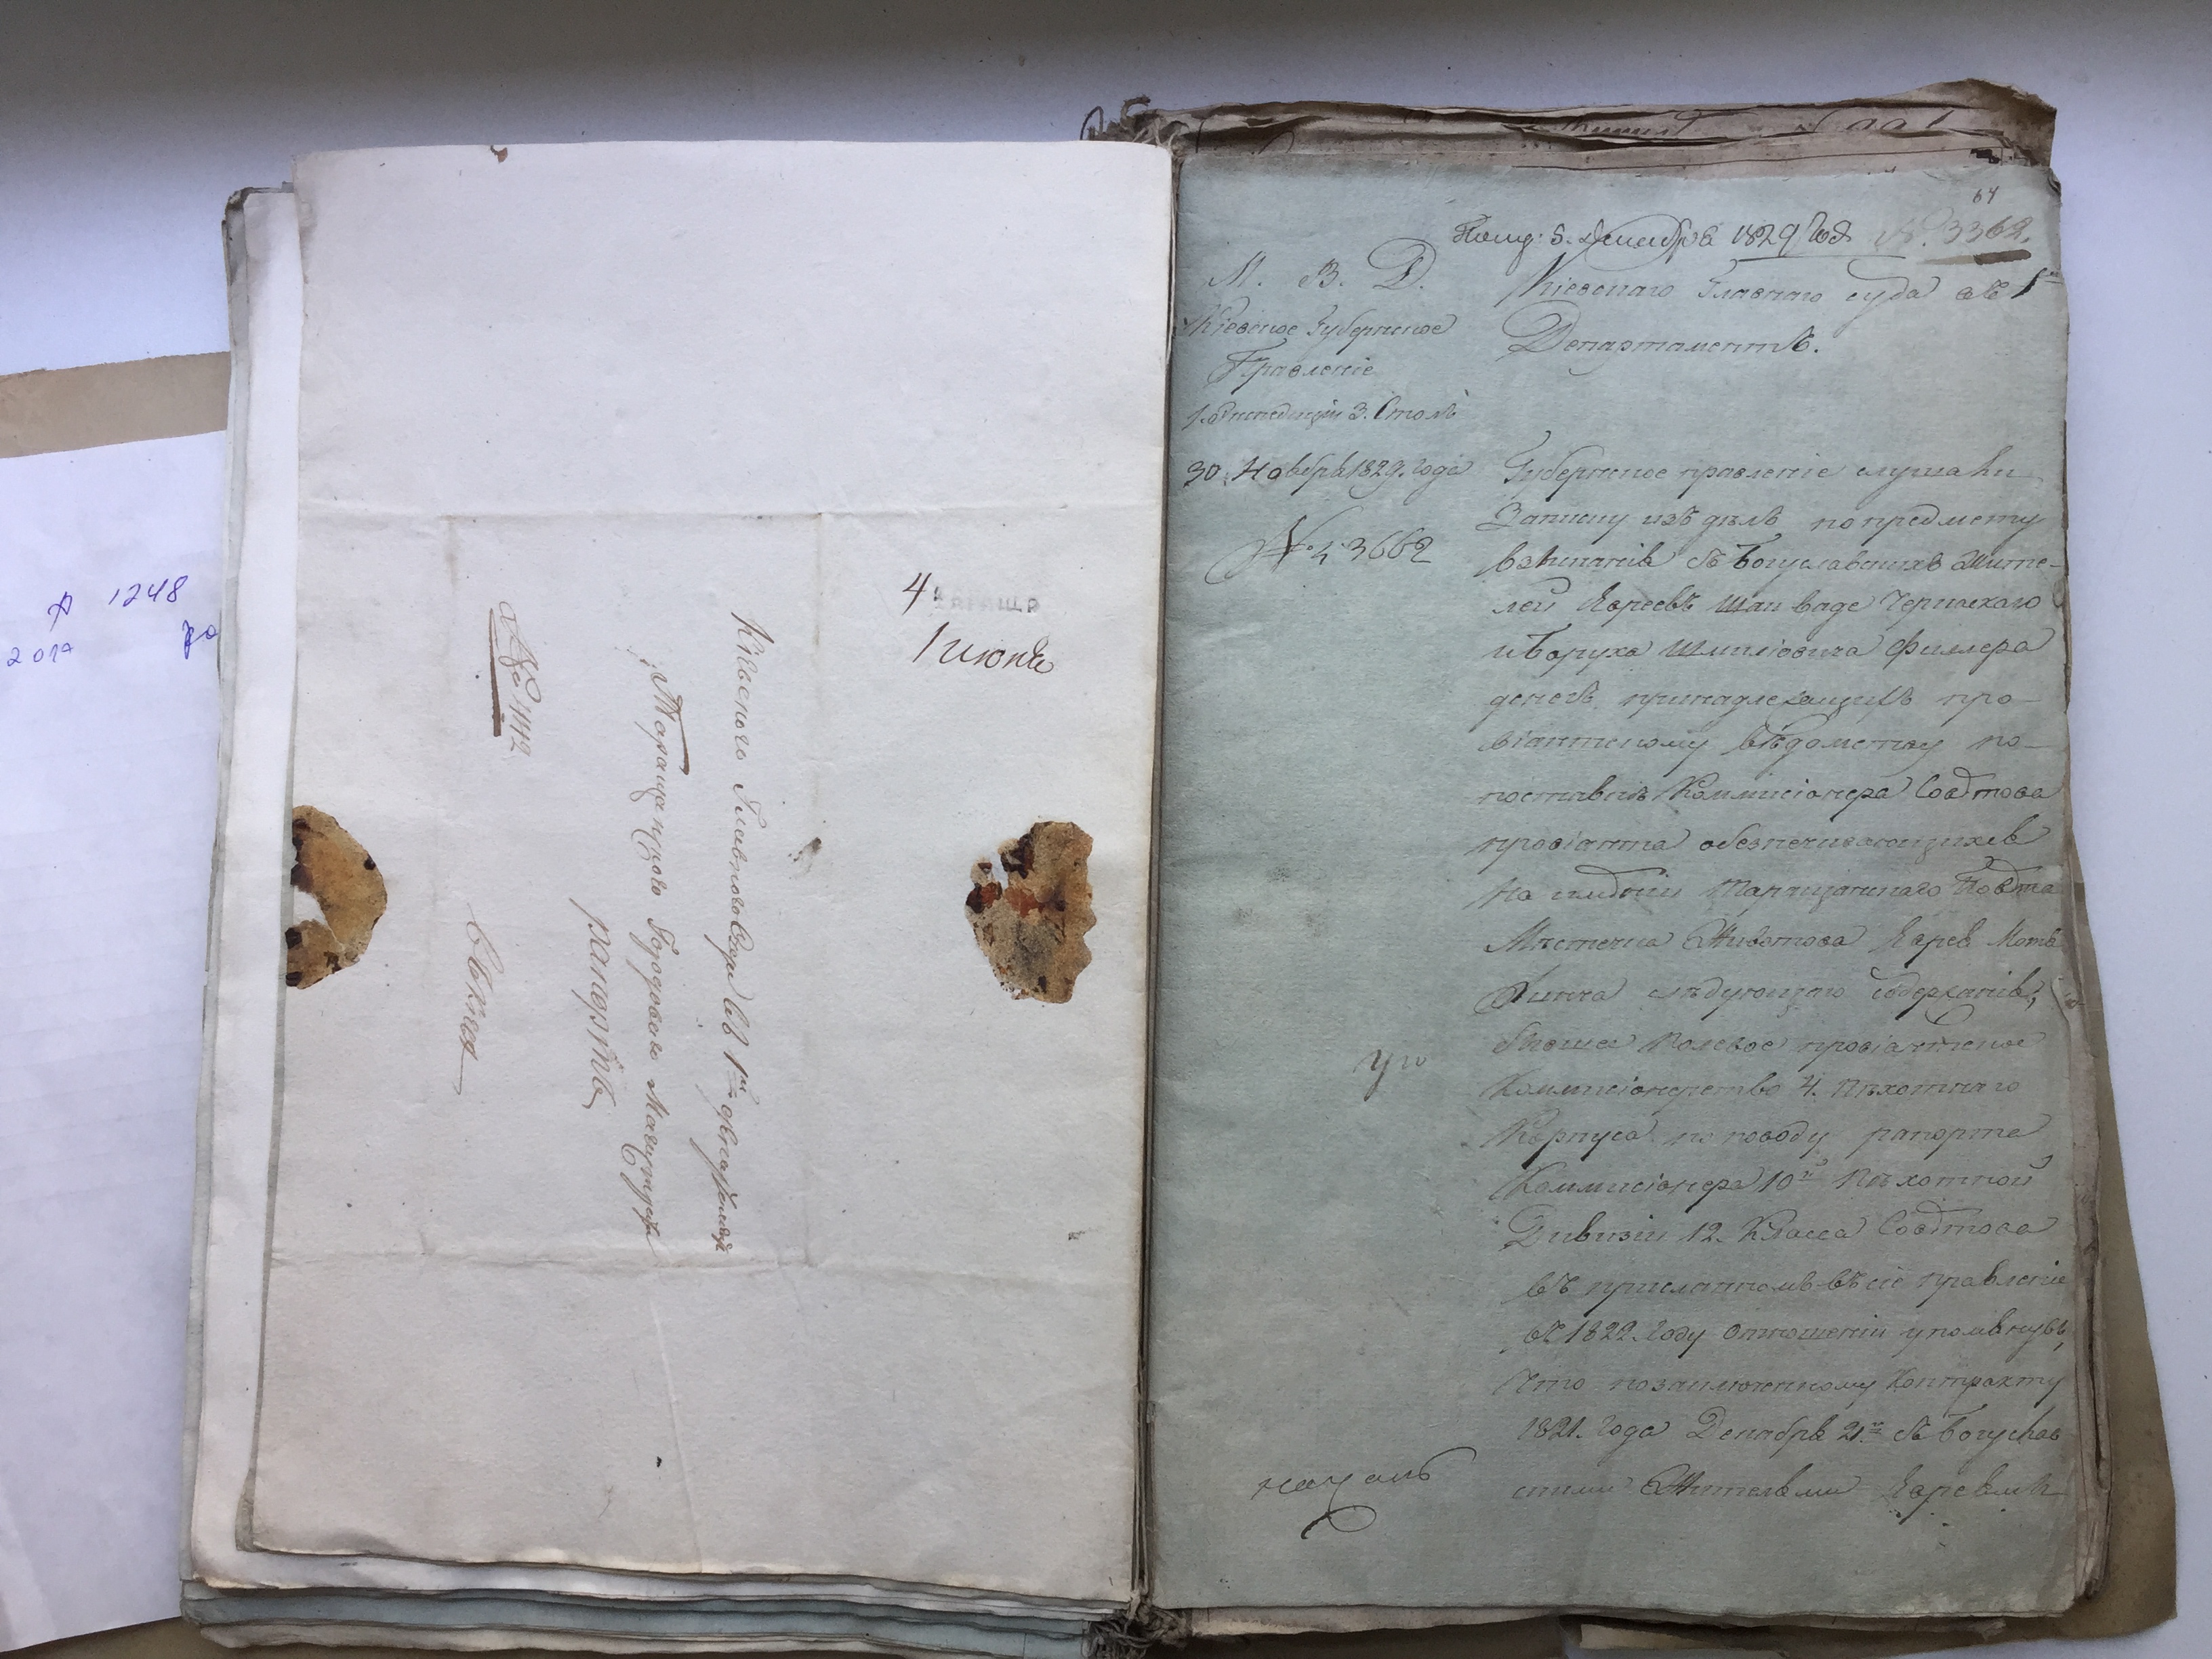 1248
2017
4
Тараща
1 июня
Кіевского Главного Суда въ 1й департаментъ
Таращанского Городового Магистрата
рапортъ
№ 442
64
Получ: 5. Декабря 1829 года № 3362.
М. В. Д.
Кіевское Губернское
Правленіе
1. Экспедиціи 3. Столъ
30. Ноября 1829. года
№ 43662
Кіевскаго Главнаго суда въ 1й
Департаментъ.
Губернское правленіе слушали
Записку изъ дѣлъ по предмету
взысканія съ Богуславскихъ Жите-
лей Евреевъ Черпаскаго
и Боруха Шмиліовича Филлера
денегъ принадлежащихъ про-
віантскому вѣдомству по
поставкѣ Коммисіонера Совѣтова
провіанта обезпечивающихся
на имѣніи Таращанскаго Повѣта
Мѣстечка Животова Еврея
слѣдующаго содержанія;
бывшее Полевое провіантское
Коммисіонерство 4. Пѣхотнаго
Корпуса по поводу рапорта
Коммисіонера 10й Пѣхотной
Дивизіи 12. Класса Совѣтова
въ присланномъ въ сіе правленіе
въ 1822. году отношеніи упомянувъ,
что по заключенному Контракту
1821. года Декабря 21го съ Богуслав
скими Жителями Евреями